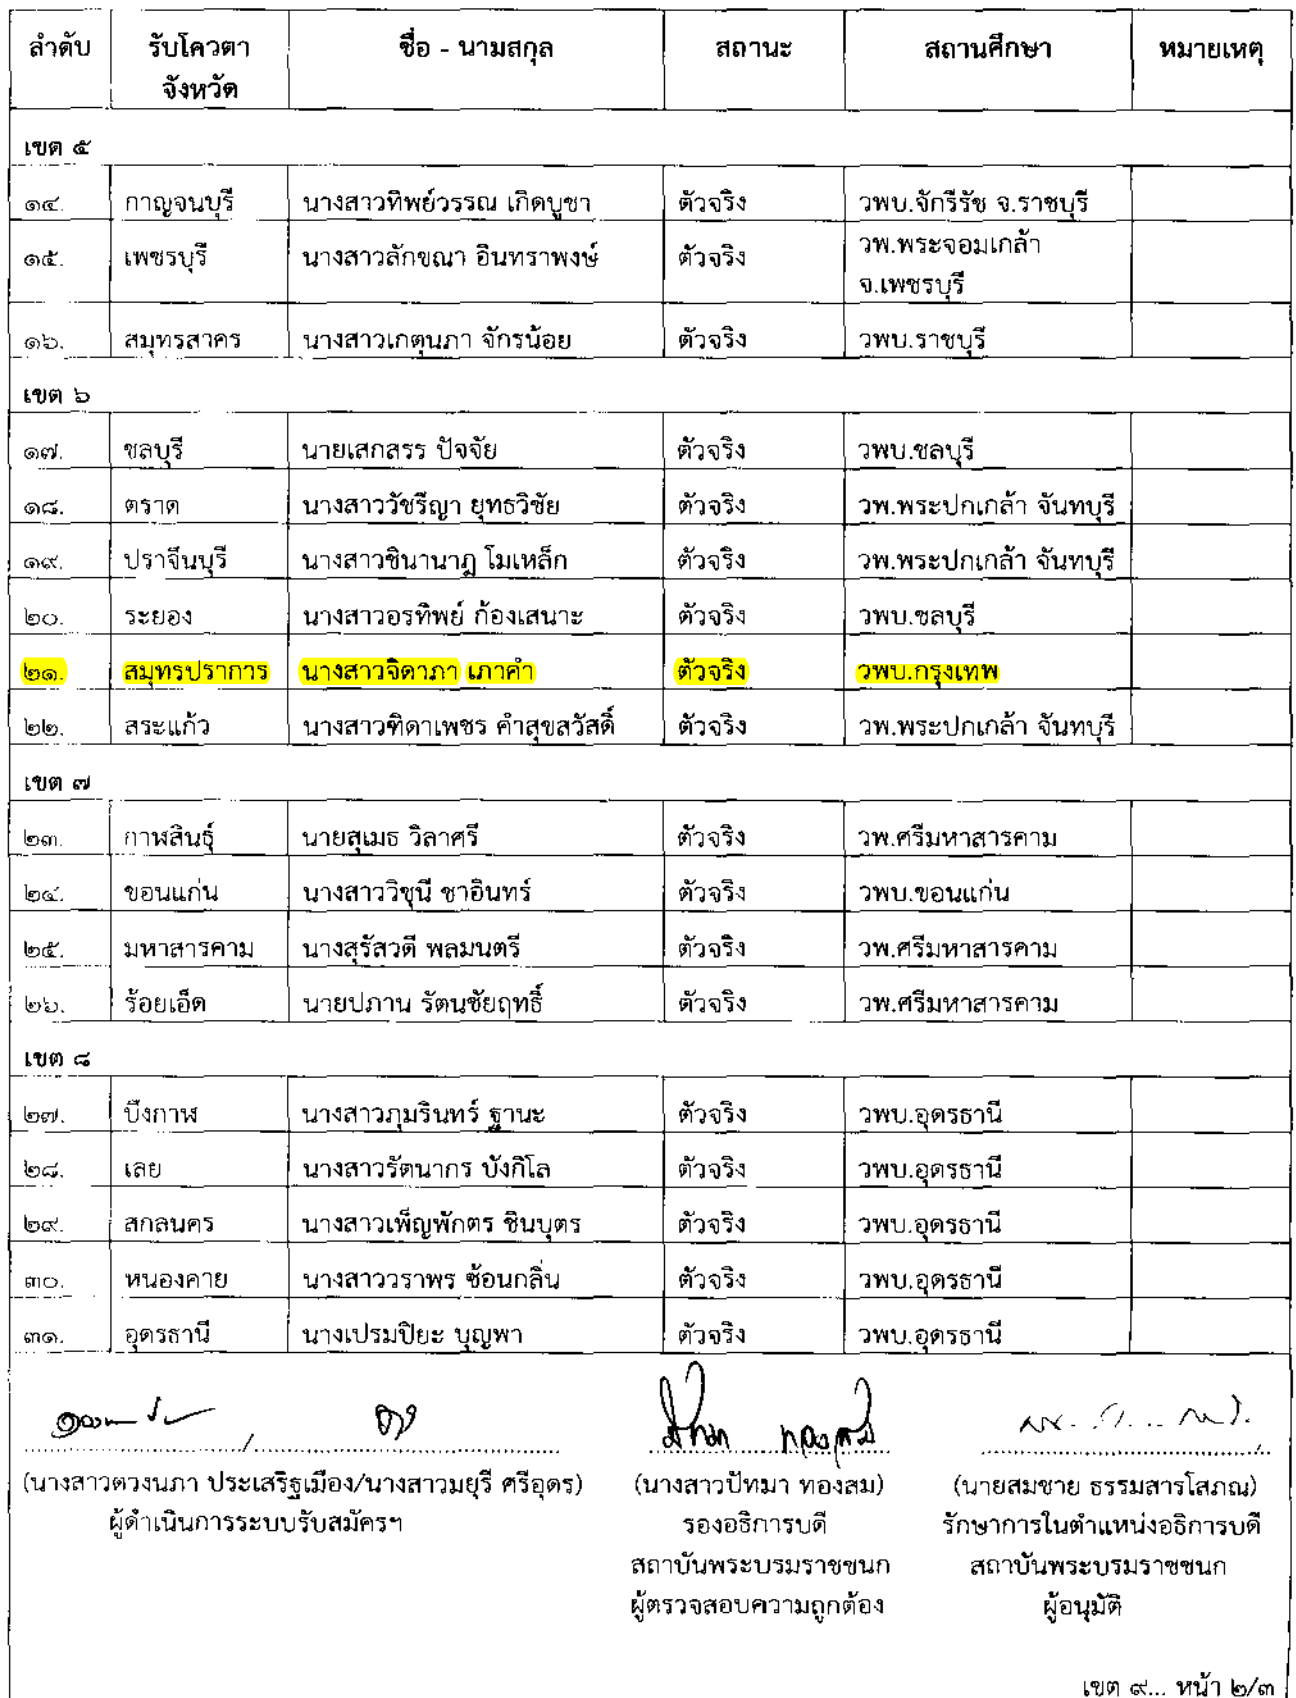 ลำดับ รับโควตา ชื่อ - นามสกุล สถานะ สถานศึกษา หมายเหตุ
จังหวัด
เขต ๕
๑๔. กาญจนบุรี นางสาวทิพย์วรรณ เกิดบูชา ตัวจริง วพบ.จักรีรัช จ.ราชบุรี
๑๕. เพชรบุรี นางสาวลักขณา อินทราพงษ์ ตัวจริง วพ.พระจอมเกล้า
จ.เพชรบุรี
๑๖. สมุทรสาคร นางสาวเกตุนภา จักรน้อย ตัวจริง วพบ.ราชบุรี
เขต ๖
๑๗. ชลบุรี นายเสกสรร ปัจจัย ตัวจริง วพบ.ชลบุรี
๑๘. ตราด นางสาววัชรีญา ยุทธวิชัย ตัวจริง วพ.พระปกเกล้า จันทบุรี
๑๙. ปราจีนบุรี นางสาวชินานาฎ โมเหล็ก ตัวจริง วพ.พระปกเกล้า จันทบุรี
๒๐. ระยอง นางสาวอรทิพย์ ก้องเสนาะ ตัวจริง วพบ.ชลบุรี
๒๑. สมุทรปราการ นางสาวจิดาภา เภาคำ ตัวจริง วพบ.กรุงเทพ
๒๒. สระแก้ว นางสาวฑิดาเพชร คำสุขสวัสดิ์ ตัวจริง วพ.พระปกเกล้า จันทบุรี
เขต ๗
๒๓. กาฬสินธุ์ นายสุเมธ วิลาศรี ตัวจริง วพ.ศรีมหาสารคาม
๒๔. ขอนแก่น นางสาววิชุนี ชาอินทร์ ตัวจริง วพบ.ขอนแก่น
๒๕. มหาสารคาม นางสุรัสวดี พลมนตรี ตัวจริง วพ.ศรีมหาสารคาม
๒๖. ร้อยเอ็ด นายปภาน รัตนชัยฤทธิ์ ตัวจริง วพ.ศรีมหาสารคาม
เขต ๘
๒๗. บึงกาฬ นางสาวภุมรินทร์ ฐานะ ตัวจริง วพบ.อุดรธานี
๒๘. เลย นางสาวรัตนากร บังกิโล ตัวจริง วพบ.อุดรธานี
๒๙. สกลนคร นางสาวเพ็ญพักตร ชินบุตร ตัวจริง วพบ.อุดรธานี
๓๐. หนองคาย นางสาววราพร ซ้อนกลิ่น ตัวจริง วพบ.อุดรธานี
๓๑. อุดรธานี นางเปรมปิยะ บุญพา ตัวจริง วพบ.อุดรธานี
(นางสาวดวงนภา ประเสริฐเมือง/นางสาวมยุรี ศรีอุดร) (นางสาวปัทมา ทองสม) (นายสมชาย ธรรมสารโสภณ)
ผู้ดำเนินการระบบรับสมัครฯ รองอธิการบดี รักษาการในตำแหน่งอธิการบดี
สถาบันพระบรมราชชนก สถาบันพระบรมราชชนก
ผู้ตรวจสอบความถูกต้อง ผู้อนุมัติ
เขต ๙... หน้า ๒/๓